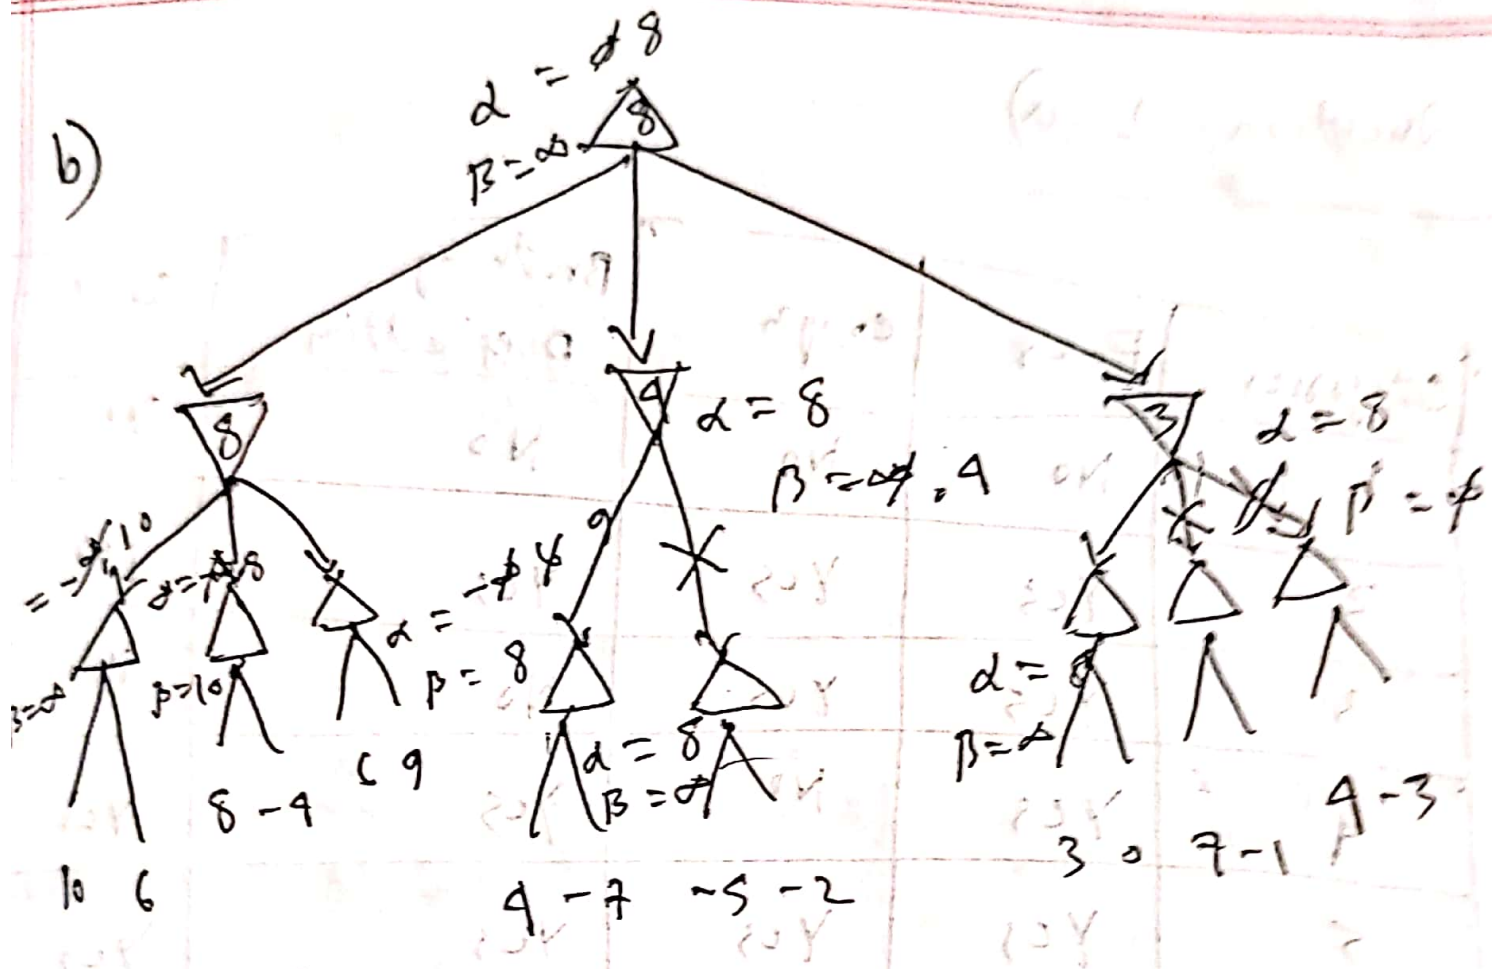 b)
α = 8
β = ∞
8
8
4
α = 8
β = 4
3
α = 8
β =
10
8
β = 10
α =
β = 8
9
α = 8
β = ∞
α = 8
β = ∞
10 6
8 -4
9
4 -7
-5 -2
3 0
7 -1
4 -3